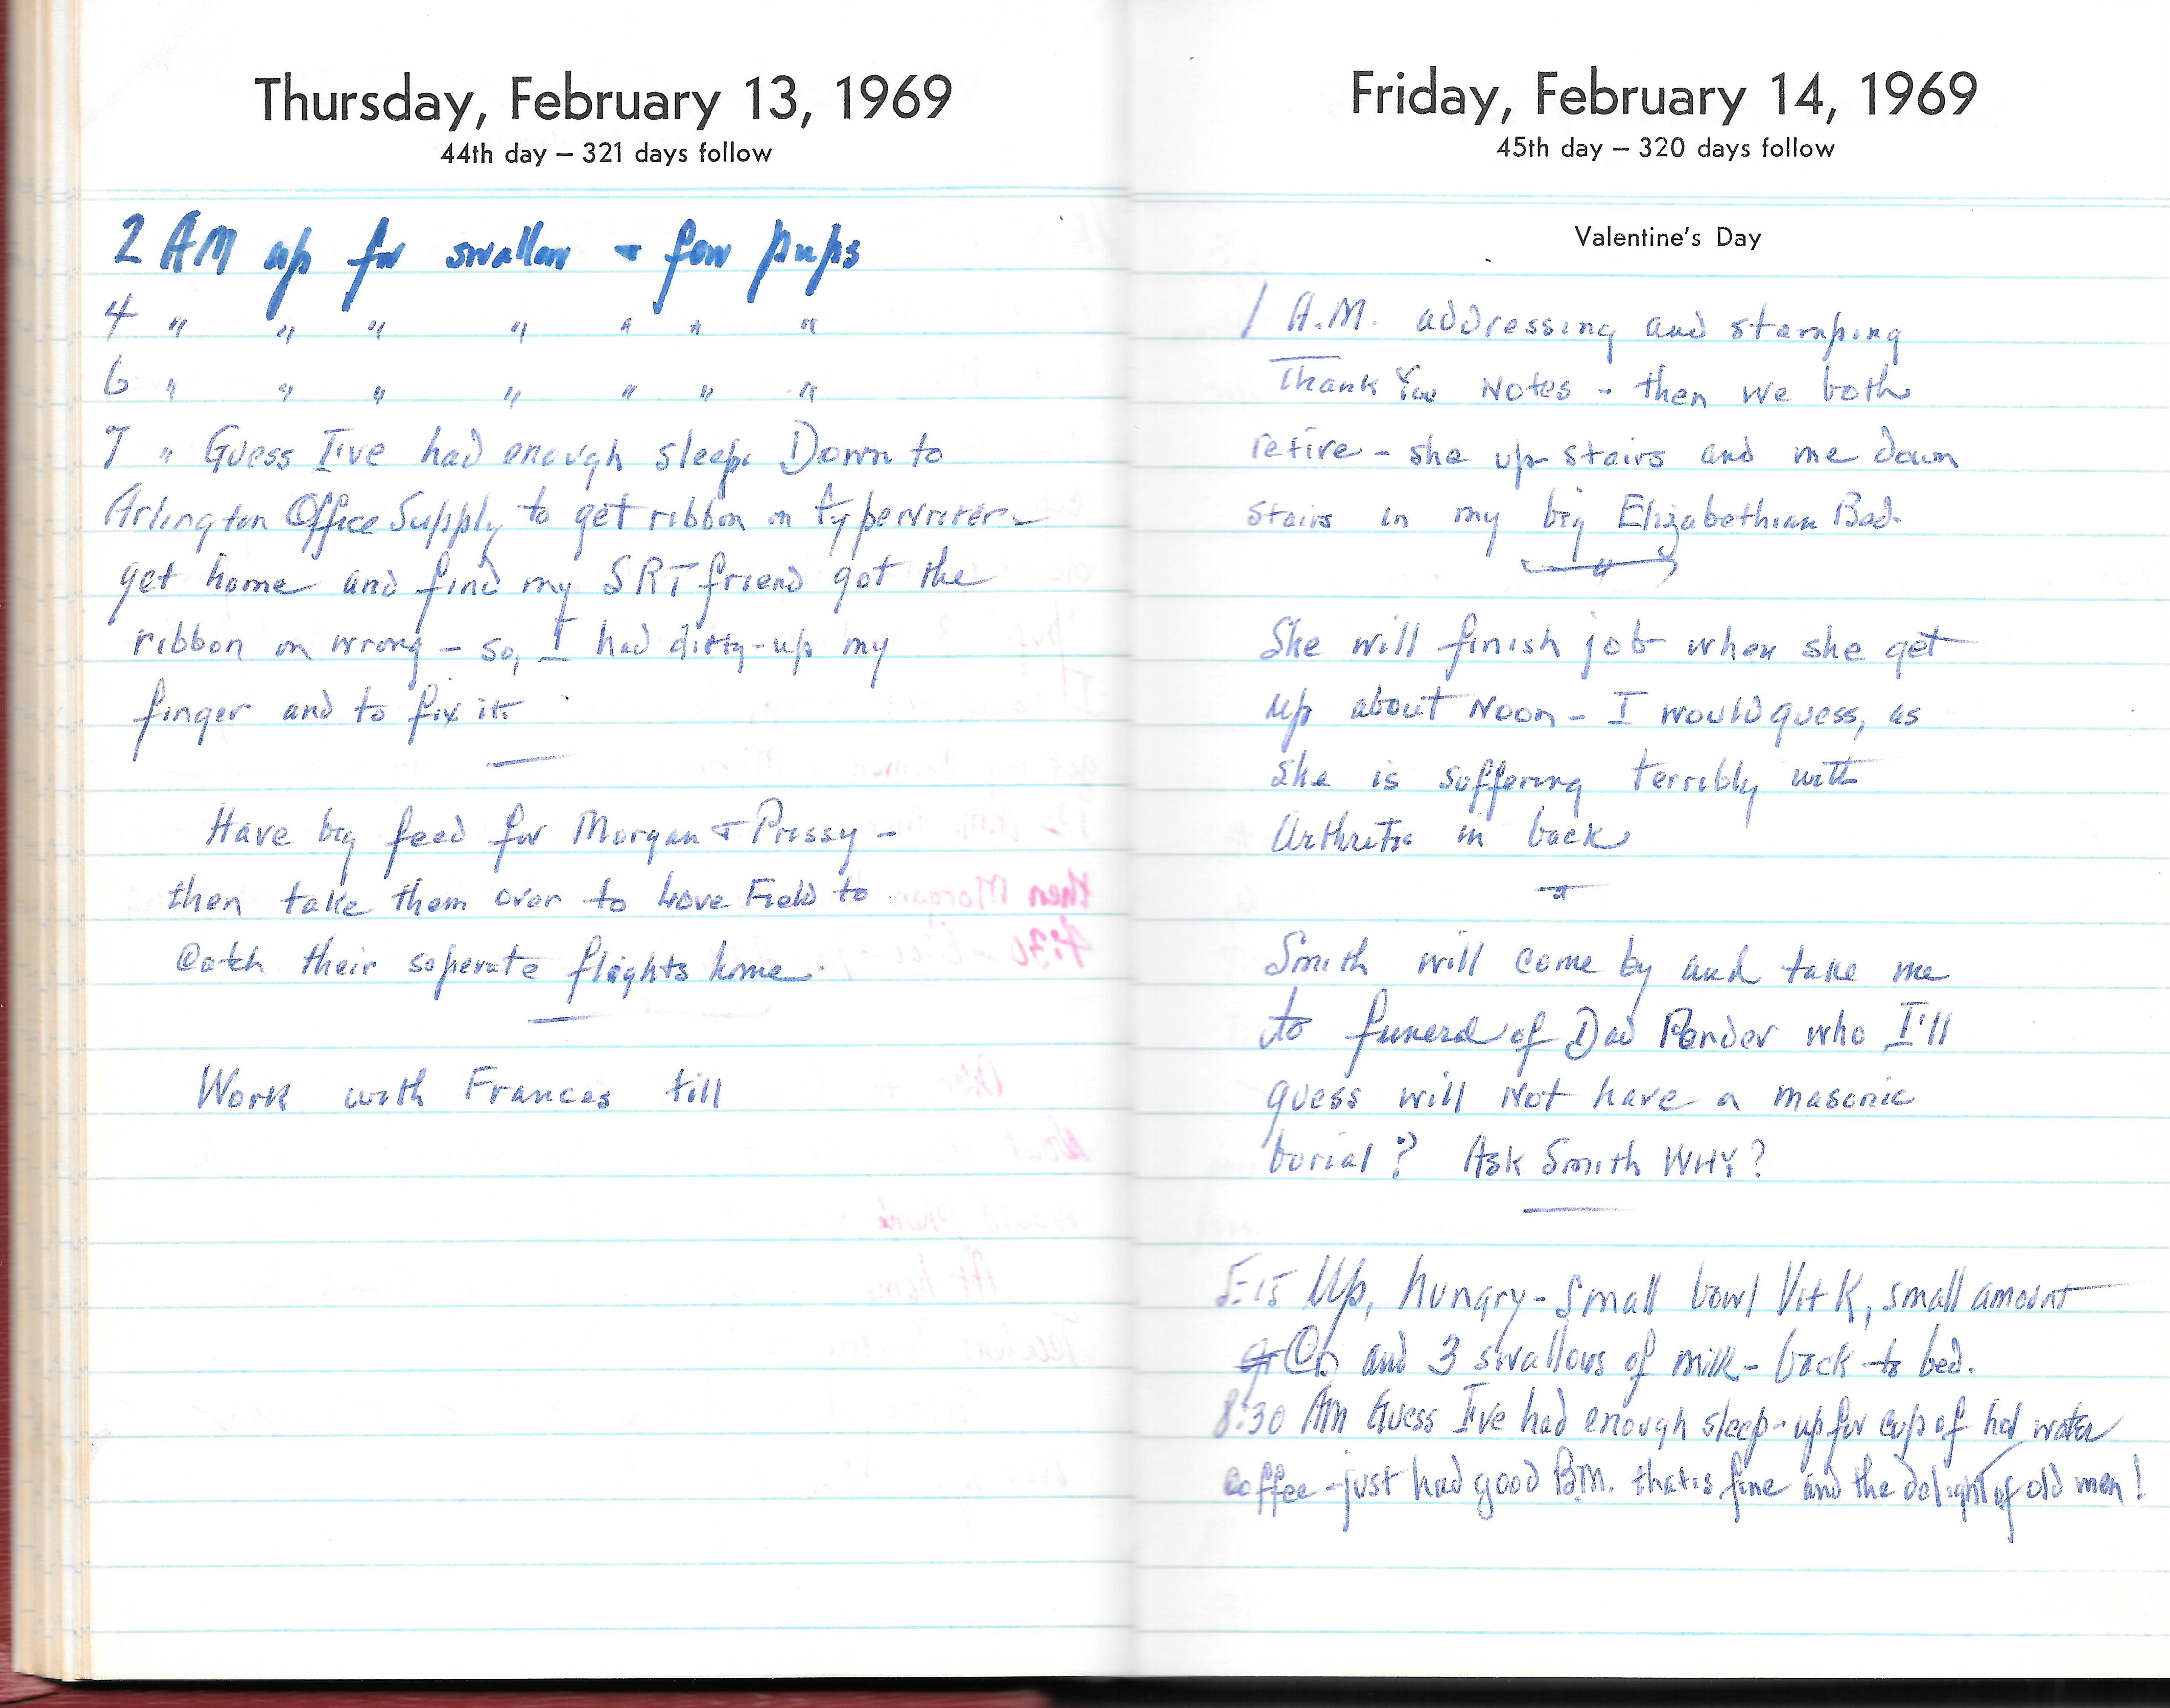 Thursday, February 13, 1969
44th day – 321 days follow
2 AM up for swallow + few pups
4 " " " " " " "
6 " " " " " " "
7 " Guess I've had enough sleep. Down to
Arlington Office Supply to get ribbon on typewriter –
get home and find my SRT friend got the
ribbon on wrong – so, I had dirty-up my
finger and to fix it.
Have big feed for Morgan + Prissy –
then take them over to Love Field to
catch their seperate flights home.
Work with Frances till
Friday, February 14, 1969
45th day – 320 days follow
Valentine's Day
1 A.M. addressing and stamping
Thank You Notes – then we both
retire – she up-stairs and me down
stairs in my big Elizabethian Bed.
She will finish job when she get
up about Noon – I would guess, as
she is suffering terribly with
Arthritis in back
Smith will come by and take me
to funeral of Dad Pender who I'll
guess will Not have a masonic
burial? Ask Smith WHY?
5:15 Up, hungry – small bowl Vit K, small amount
and 3 swallows of milk – back to bed.
8:30 AM Guess I've had enough sleep – up for cup of hot water
coffee – just had good B.M. that is fine and the delight of old men!